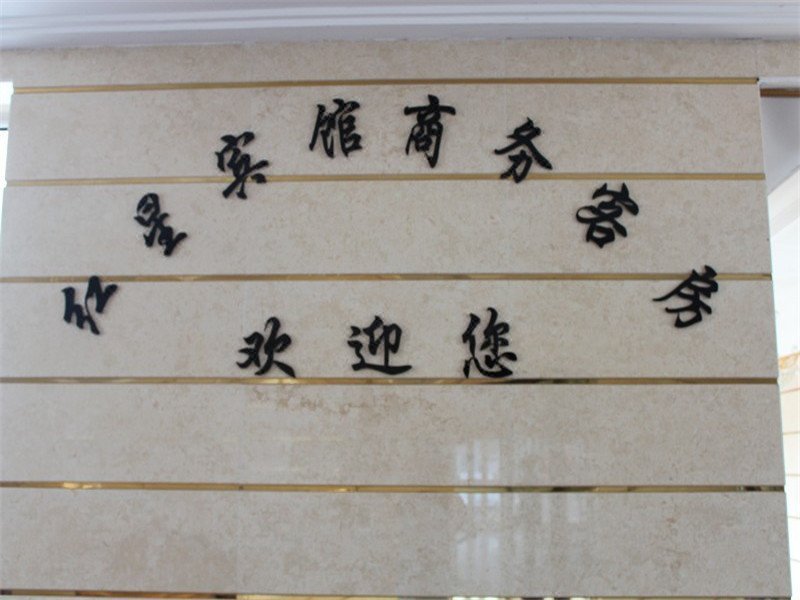 红星宾馆商务客房
欢迎您